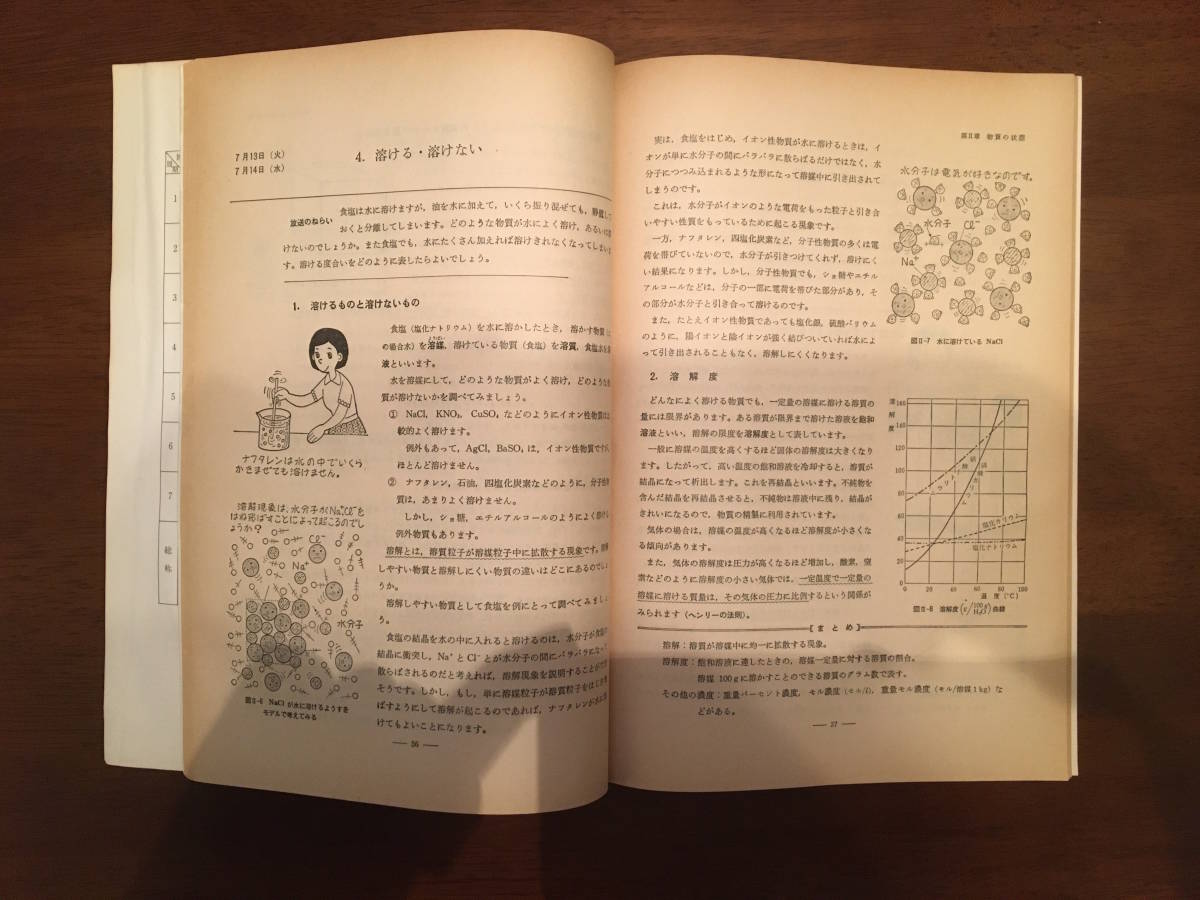 月
期
1
2
3
4
5
6
7
総
称
7月13日(火)
7月14日(水)
4. 溶ける・溶けない
放送のねらい
食塩は水に溶けますが，油を水に加えて，いくら振り混ぜても，静置して
おくと分離してしまいます。どのような物質が水によく溶け，あるいは溶
けないのでしょうか。また食塩でも，水にたくさん加えれば溶けきれなくなってしまいま
す。溶ける度合いをどのように表したらよいでしょう。
1. 溶けるものと溶けないもの
食塩（塩化ナトリウム）を水に溶かしたとき，溶かす物質（こ
の場合水）を溶媒，溶けている物質（食塩）を溶質，食塩水を溶
液といいます。
水を溶媒にして，どのような物質がよく溶け，どのような物
質が溶けないかを調べてみましょう。
① NaCl, KNO₃, CuSO₄ などのようにイオン性物質は比
較的よく溶けます。
例外もあって，AgCl, BaSO₄ は，イオン性物質ですが，
ほとんど溶けません。
② ナフタレン，石油，四塩化炭素などのように，分子性物
質は，あまりよく溶けません。
しかし，ショ糖，エチルアルコールのようによく溶ける
例外物質もあります。
溶解とは，溶質粒子が溶媒粒子中に拡散する現象です。溶解
しやすい物質と溶解しにくい物質の違いはどこにあるのでしょ
うか。
溶解しやすい物質として食塩を例にとって調べてみましょ
う。
食塩の結晶を水の中に入れると溶けるのは，水分子が食塩の
結晶に衝突し，Na⁺ と Cl⁻ とが水分子の間にバラバラになって
散らばされるのだと考えれば，溶解現象を説明することができ
そうです。しかし，もし，単に溶媒粒子が溶質粒子をはじき飛
ばすようにして溶解が起こるのであれば，ナフタレンが水に溶
けてもよいことになります。
ナフタレンは水の中でいくら
かきまぜても溶けません。
溶解現象は，水分子がNa⁺,Cl⁻を
はね飛ばすことによって起こるのでし
ょうか？
Cl⁻
Na⁺
水分子
図Ⅱ-6 NaCl が水に溶けるようすを
モデルで考えてみる
— 36 —
第Ⅱ章 物質の状態
実は，食塩をはじめ，イオン性物質が水に溶けるときは，イ
オンが単に水分子の間にバラバラに散らばるだけではなく，水
分子につつみ込まれるような形になって溶媒中に引き出されて
しまうのです。
これは，水分子がイオンのような電荷をもった粒子と引き合
いやすい性質をもっているために起こる現象です。
一方，ナフタレン，四塩化炭素など，分子性物質の多くは電
荷を帯びていないので，水分子が引きつけてくれず，溶けにく
い結果になります。しかし，分子性物質でも，ショ糖やエチル
アルコールなどは，分子の一部に電荷を帯びた部分があり，そ
の部分が水分子と引き合って溶けるのです。
また，たとえイオン性物質であっても塩化銀，硫酸バリウム
のように，陽イオンと陰イオンが強く結びついていれば水によ
って引き出されることもなく，溶解しにくくなります。
水分子は電気が好きなのです。
水分子
Cl⁻
Na⁺
図Ⅱ-7 水に溶けている NaCl
2. 溶解度
どんなによく溶ける物質でも，一定量の溶媒に溶ける溶質の
量には限界があります。ある溶質が限界まで溶けた溶液を飽和
溶液といい，溶解の限度を溶解度として表しています。
一般に溶媒の温度を高くするほど固体の溶解度は大きくなり
ます。したがって，高い温度の飽和溶液を冷却すると，溶質が
結晶になって析出します。これを再結晶といいます。不純物を
含んだ結晶を再結晶させると，不純物は溶液中に残り，結晶が
きれいになるので，物質の精製に利用されています。
気体の場合は，溶媒の温度が高くなるほど溶解度が小さくな
る傾向があります。
また，気体の溶解度は圧力が高くなるほど増加し，酸素，窒
素などのように溶解度の小さい気体では，一定温度で一定量の
溶媒に溶ける質量は，その気体の圧力に比例するという関係が
みられます（ヘンリーの法則）。
溶解度
160
140
120
100
80
60
40
20
0
0 20 40 60 80 100
塩化カリウム
塩化ナトリウム
温度(℃)
図Ⅱ-8 溶解度(g/100g H₂O)曲線
【まとめ】
溶解：溶質が溶媒中に均一に拡散する現象。
溶解度：飽和溶液に達したときの，溶媒一定量に対する溶質の割合。
溶媒 100g に溶かすことのできる溶質のグラム数で表す。
その他の濃度：重量パーセント濃度，モル濃度（モル/l），重量モル濃度（モル/溶媒1kg）な
どがある。
— 37 —